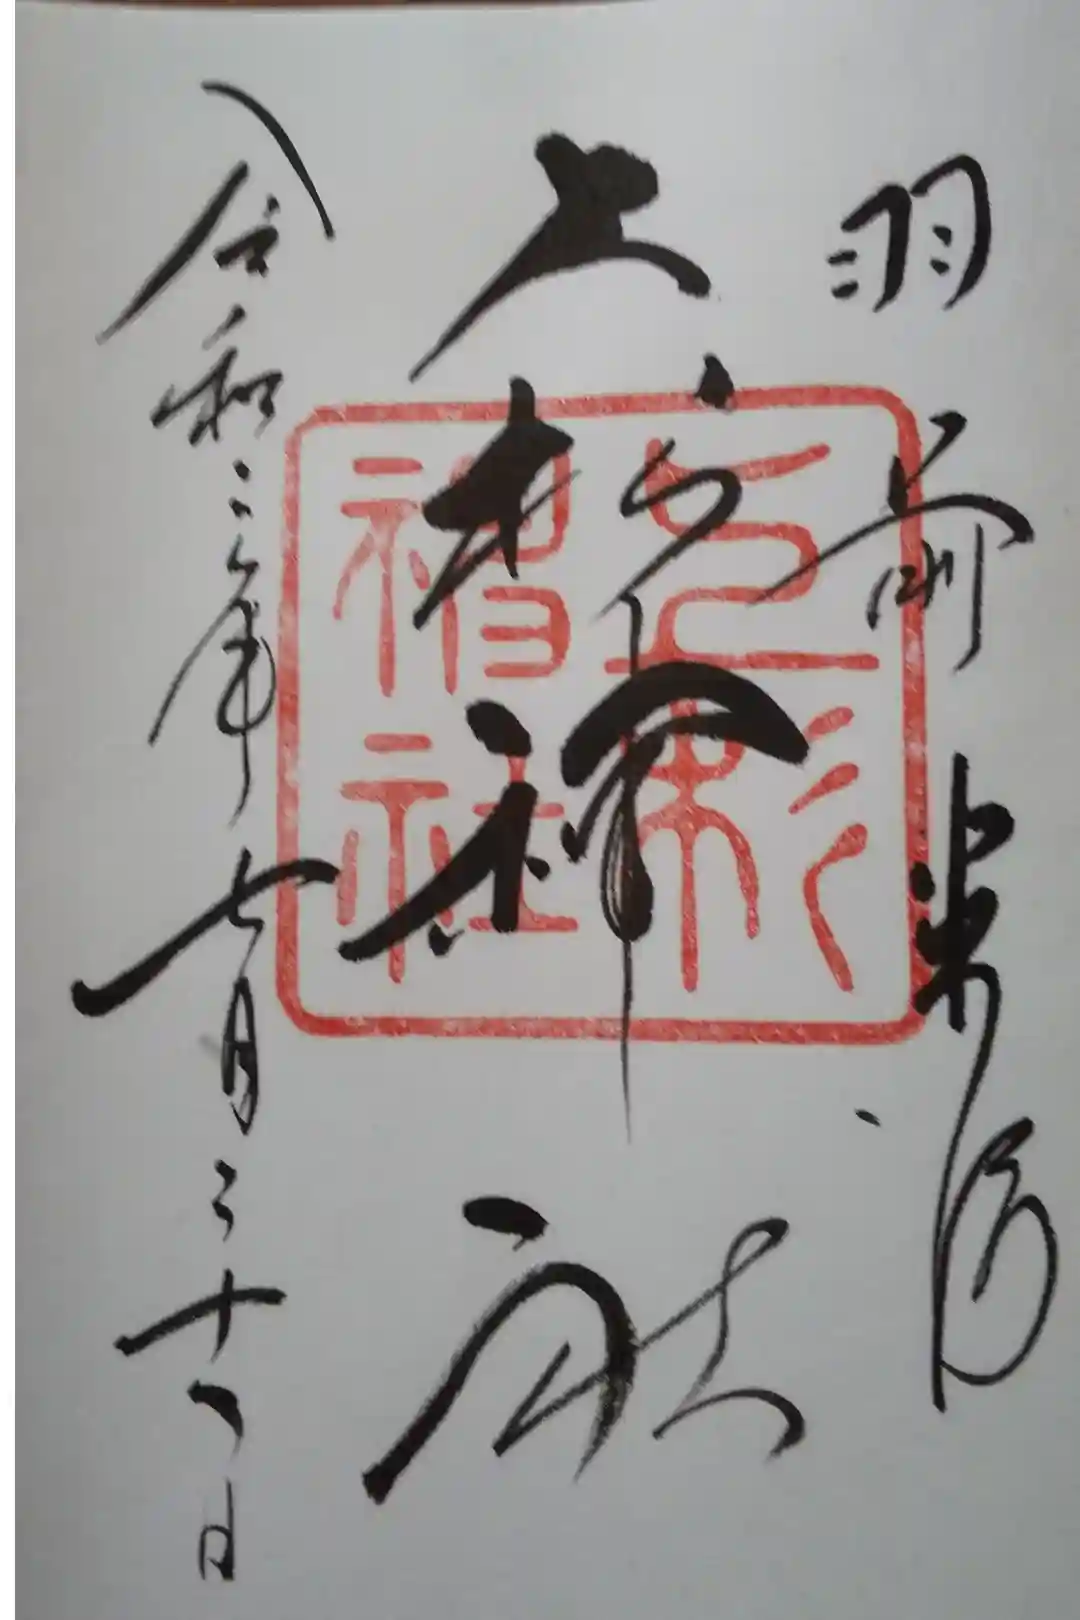 羽前米沢
上杉神社
令和二年七月三十一日
上杉
神社